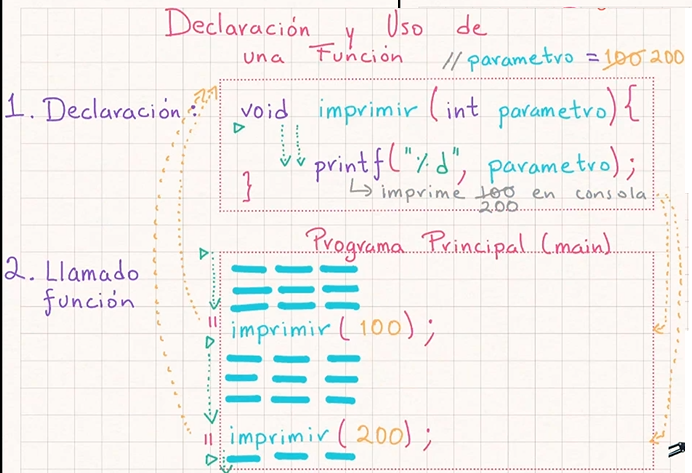 Declaración y Uso de
una Función // parametro = 100 200
1. Declaración: void imprimir (int parametro) {
printf("%d", parametro);
↳ imprime 100 en consola
200
}
Programa Principal (main)
2. Llamado
función
imprimir (100);
imprimir (200);